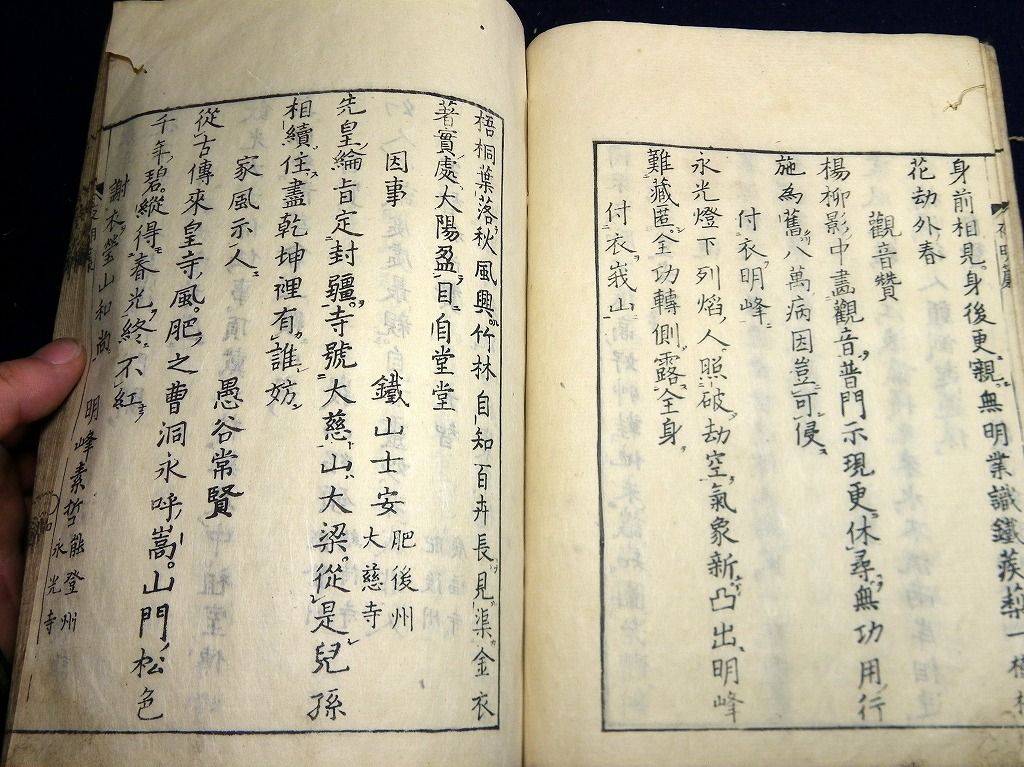 身前相見身後更親無明業識鐵蒺䔧一
花劫外春
觀音贊
楊柳影中畫觀音普門示現更休尋無功用行
施為舊八萬病因豈可侵
付衣明峰
永光燈下列焰人照破劫空氣象新凸出明峰
難藏匿全功轉側露全身
付衣峩山
梧桐葉落秋風興竹林自知百卉長見渠金衣
著實處大陽盈目自堂堂
因事 鐵山士安 肥後州大慈寺
先皇綸旨定封疆寺號大慈山大梁從是兒孫
相續住盡乾坤裡有誰妨
家風示人 愚谷常賢
從古傳來皇寺風肥之曹洞永呼嵩山門松色
千年碧縱得春光終不紅
謝衣瑩山和尚 明峰素哲 能登州永光寺